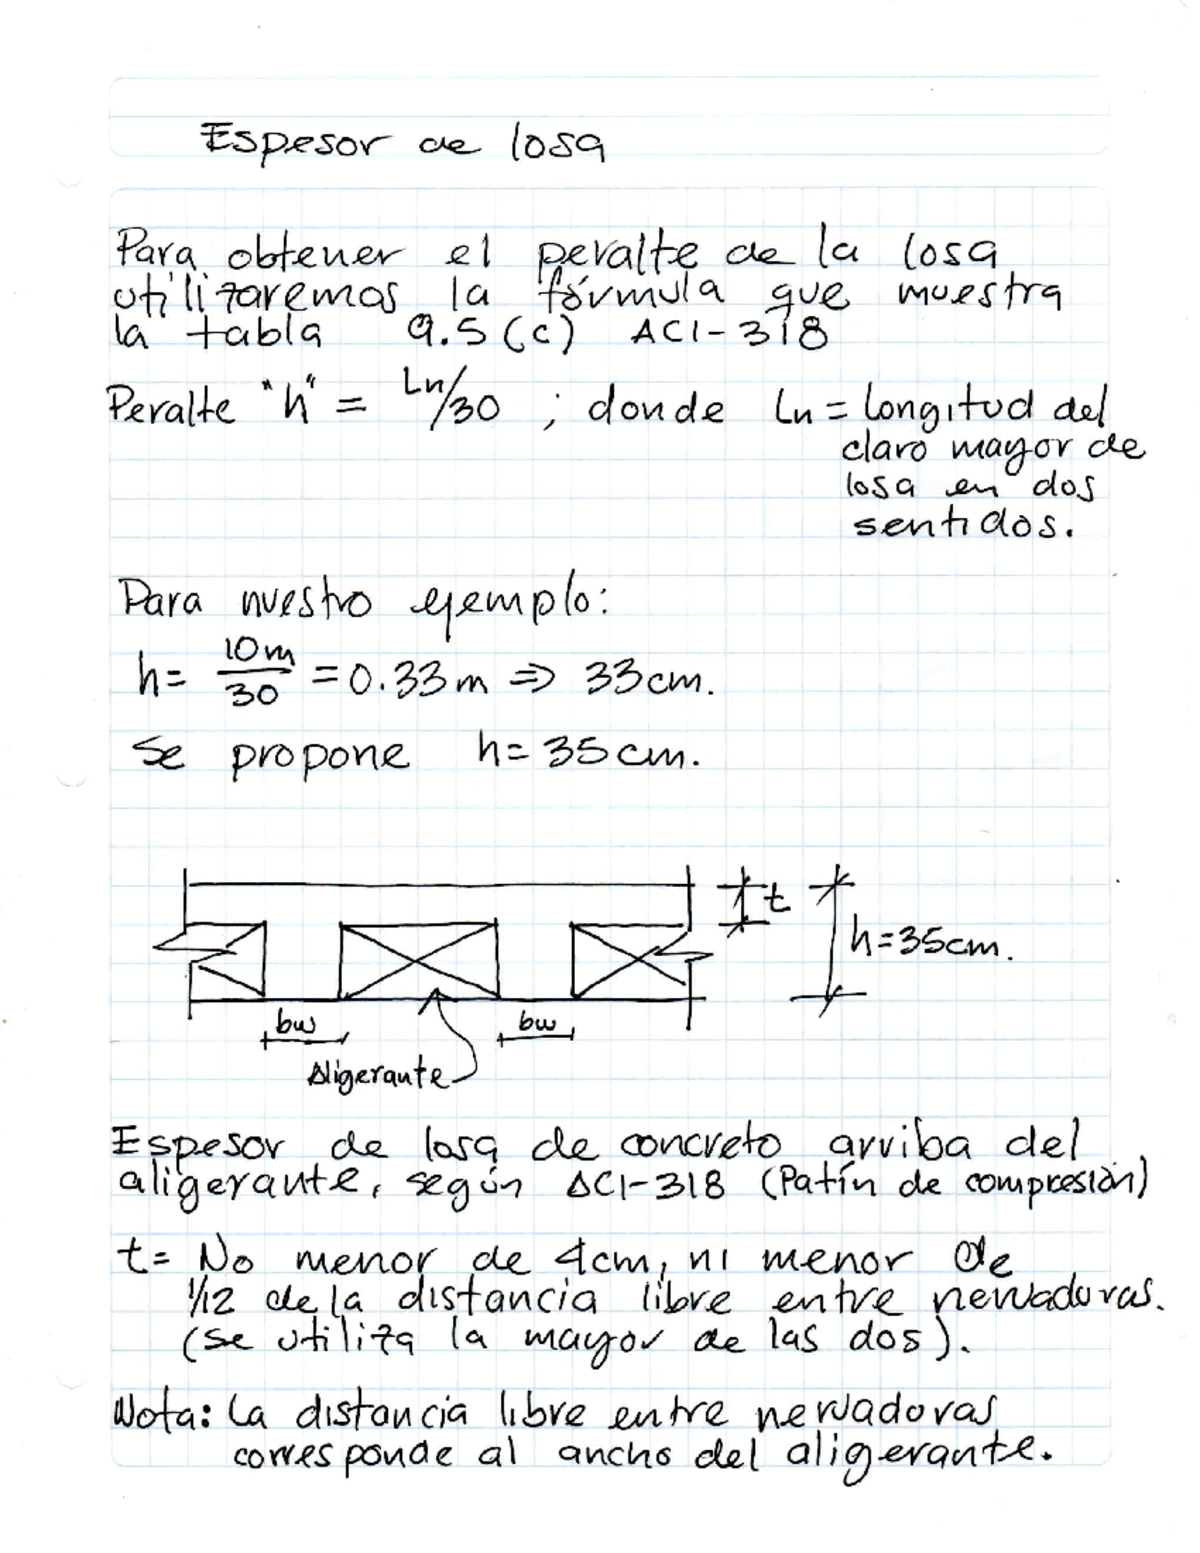 Espesor de losa
Para obtener el peralte de la losa
utilizaremos la fórmula que muestra
la tabla 9.5 (c) ACI-318
Peralte "h" = Ln/30 ; donde Ln = Longitud del
claro mayor de
losa en dos
sentidos.
Para nuestro ejemplo:
h= 10m/30 = 0.33m ⇒ 33cm.
Se propone h= 35cm.
t
h=35cm.
bw
bw
Aligerante
Espesor de losa de concreto arriba del
aligerante, según ACI-318 (Patín de compresión)
t= No menor de 4cm, ni menor de
1/12 de la distancia libre entre nervaduras.
(se utiliza la mayor de las dos).
Nota: La distancia libre entre nervaduras
corresponde al ancho del aligerante.